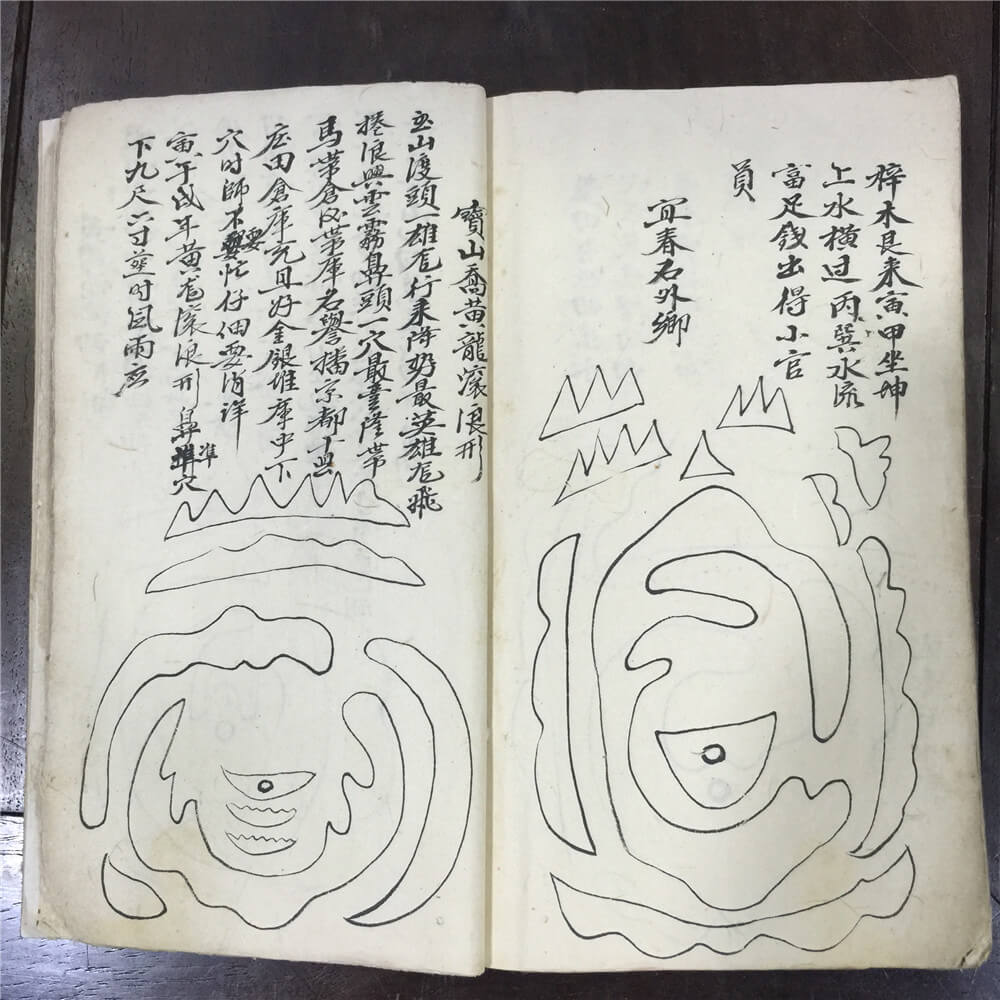 梓木艮来寅甲坐坤
上水横过丙巽水流
富足錢出得小官
員
宜春名外鄉
寶山喬黄龍滚浪形
玉山渡頭一雄龙行来落穷最英雄龙飛
捲浪興雲霧鼻頭一穴最豊隆帶
馬帶倉及帶庫名譽播京都下
庄田倉庫充且好金銀堆庫中下
穴时師不要忙仔细要消详
寅午戌年黄龙滚浪形 鼻準穴
下九尺六寸葬时風雨应